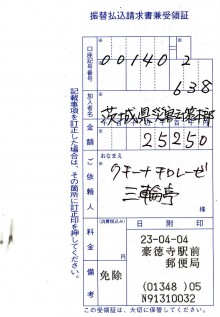 振替払込請求書兼受領証
口座記号番号
00140 2
638
加入者名
茨城県災害対策本部
金額
25250
ご依頼人
おなまえ
クチーナチロレーゼ
三輪亭
様
料金
(消費税込み)
日附印
23-04-04
豪徳寺駅前
郵便局
備考
免除
(01348)05
N91310032
この受領証は、大切に保管してください。
記載事項を訂正した場合は、その箇所に訂正印を押してください。